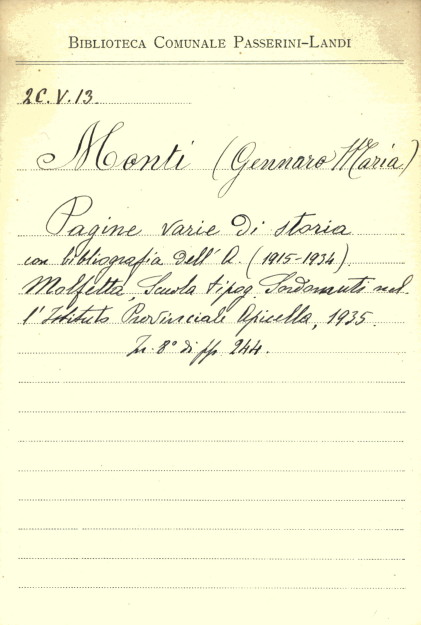 BIBLIOTECA COMUNALE PASSERINI-LANDI
2C.V.13
Monti (Gennaro Maria)
Pagine varie di storia
con bibliografia dell'A. (1915-1934).
Molfetta, Scuola tipog. Sordomuti nel-
l'Istituto Provinciale Apicella, 1935.
In 8° di pp. 244.